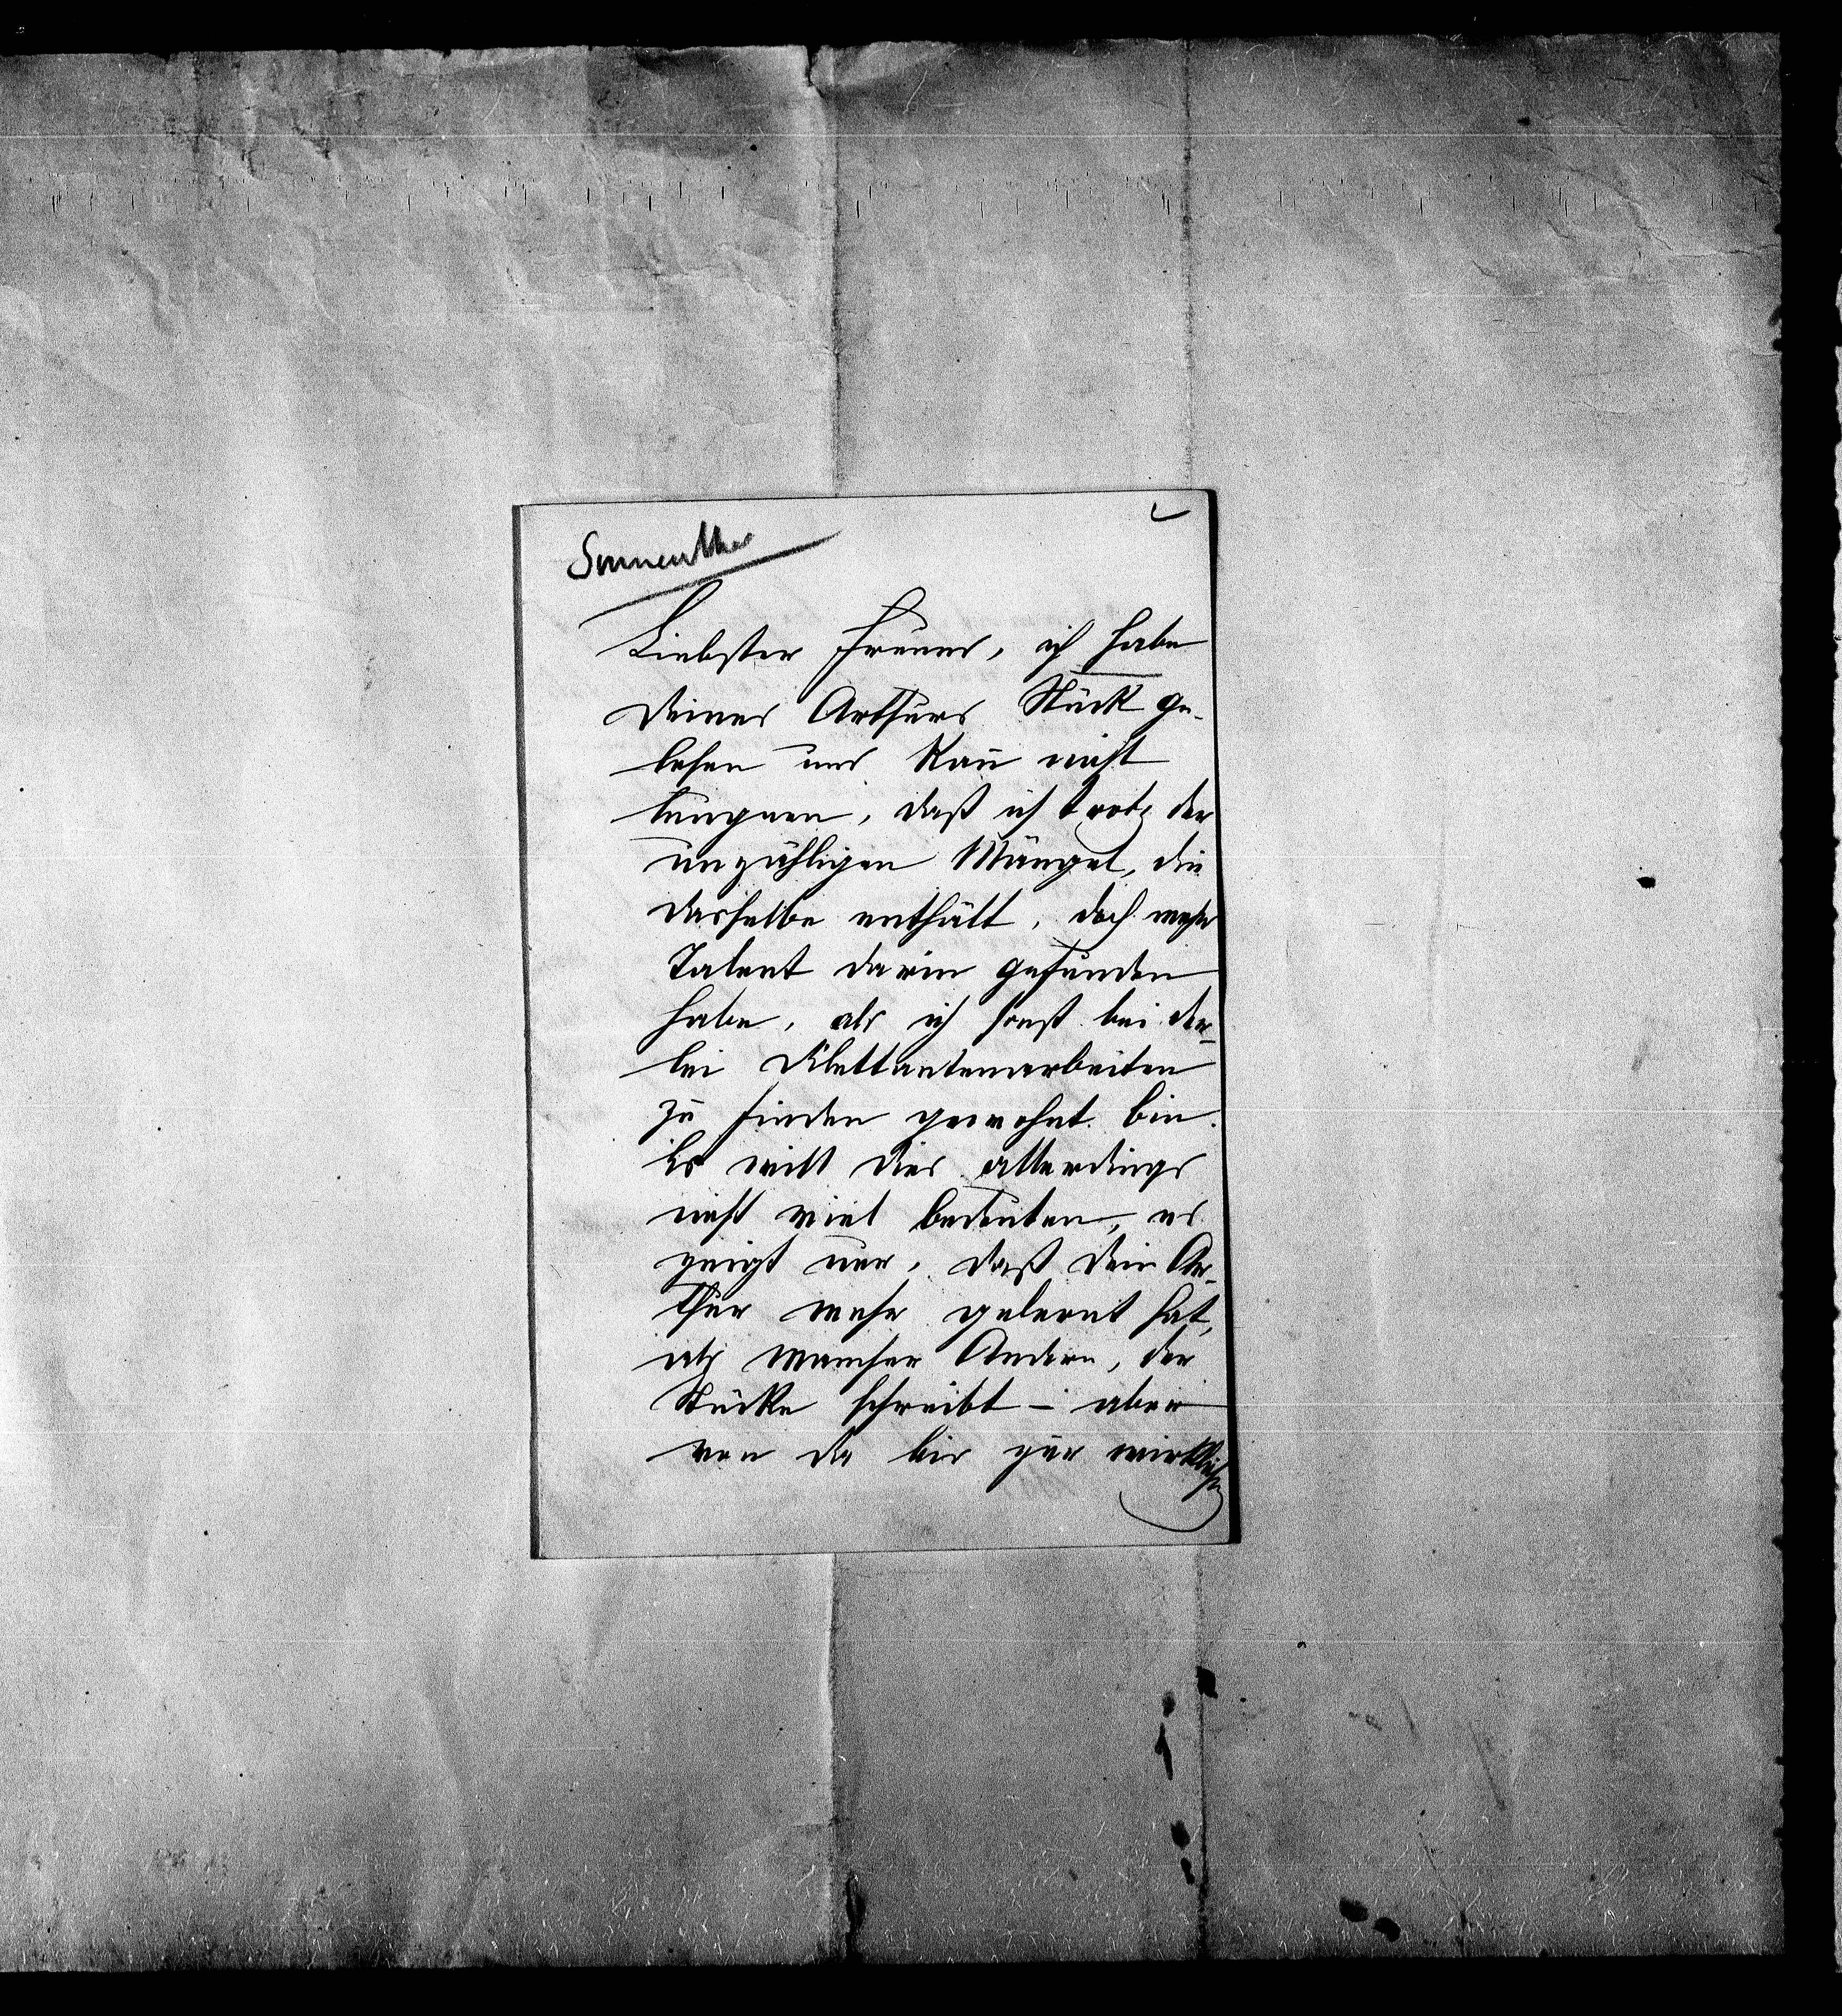 Sonnenthal
Liebster Freund, ich habe
Deines Arthurs Stück ge-
lesen und kan̄ nicht
leugnen, daß ich trotz der
unzähligen Mängel, die
dasselbe enthält, doch mehr
Talent darin gefunden
habe, als ich sonst bei der-
lei Dilettantenarbeiten
zu finden gewohnt bin.
Es will dies allerdings
nicht viel bedeuten, es
zeigt nur, daß dein Ar-
thur mehr gelernt hat,
als mancher Andere, der
Stücke schreibt – aber
von da bis zur wirklichen